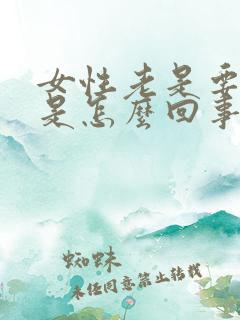 女性老是要
是怎麼回事
蜘蛛
未经同意禁止转载